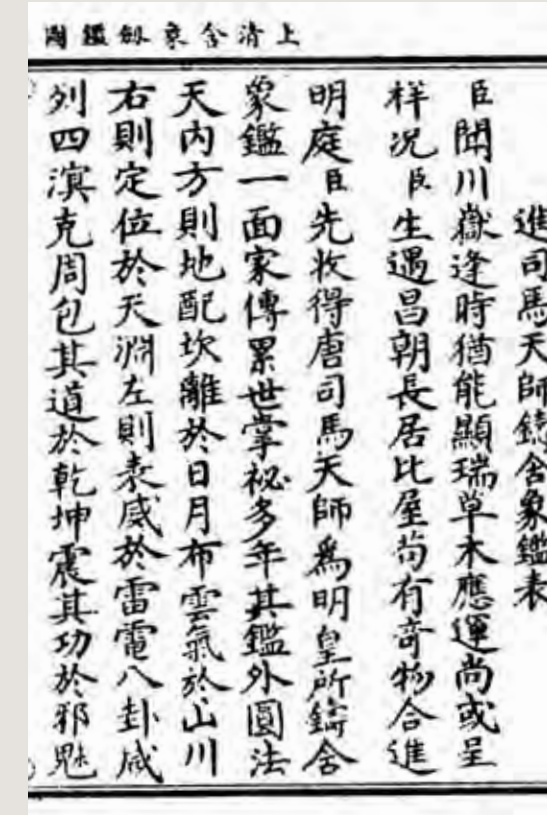 上清含象劍鑑圖
進司馬天師鑄含象鑑表
臣聞川嶽逢時猶能顯瑞草木應運尚或呈
祥况臣生遇昌朝長居比屋苟有奇物合進
明庭臣先收得唐司馬天師爲明皇所鑄含
象鑑一面家傳累世掌祕多年其鑑外圓法
天內方則地配坎離於日月布雲氣於山川
右則定位於天淵左則表威於雷電八卦咸
列四溟克周包其道於乾坤震其功於邪魅